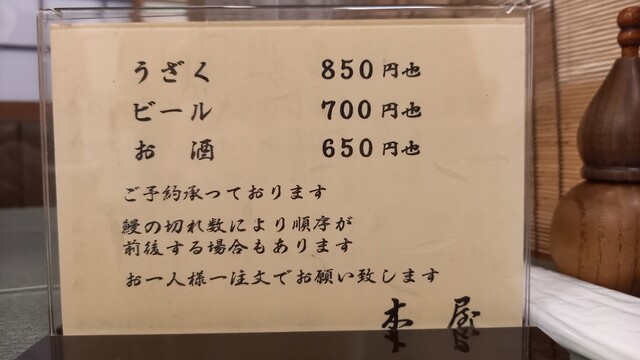 うざく 850円也
ビール 700円也
お酒 650円也
ご予約承っております
鰻の切れ数により順序が
前後する場合もあります
お一人様一注文でお願い致します
本屋